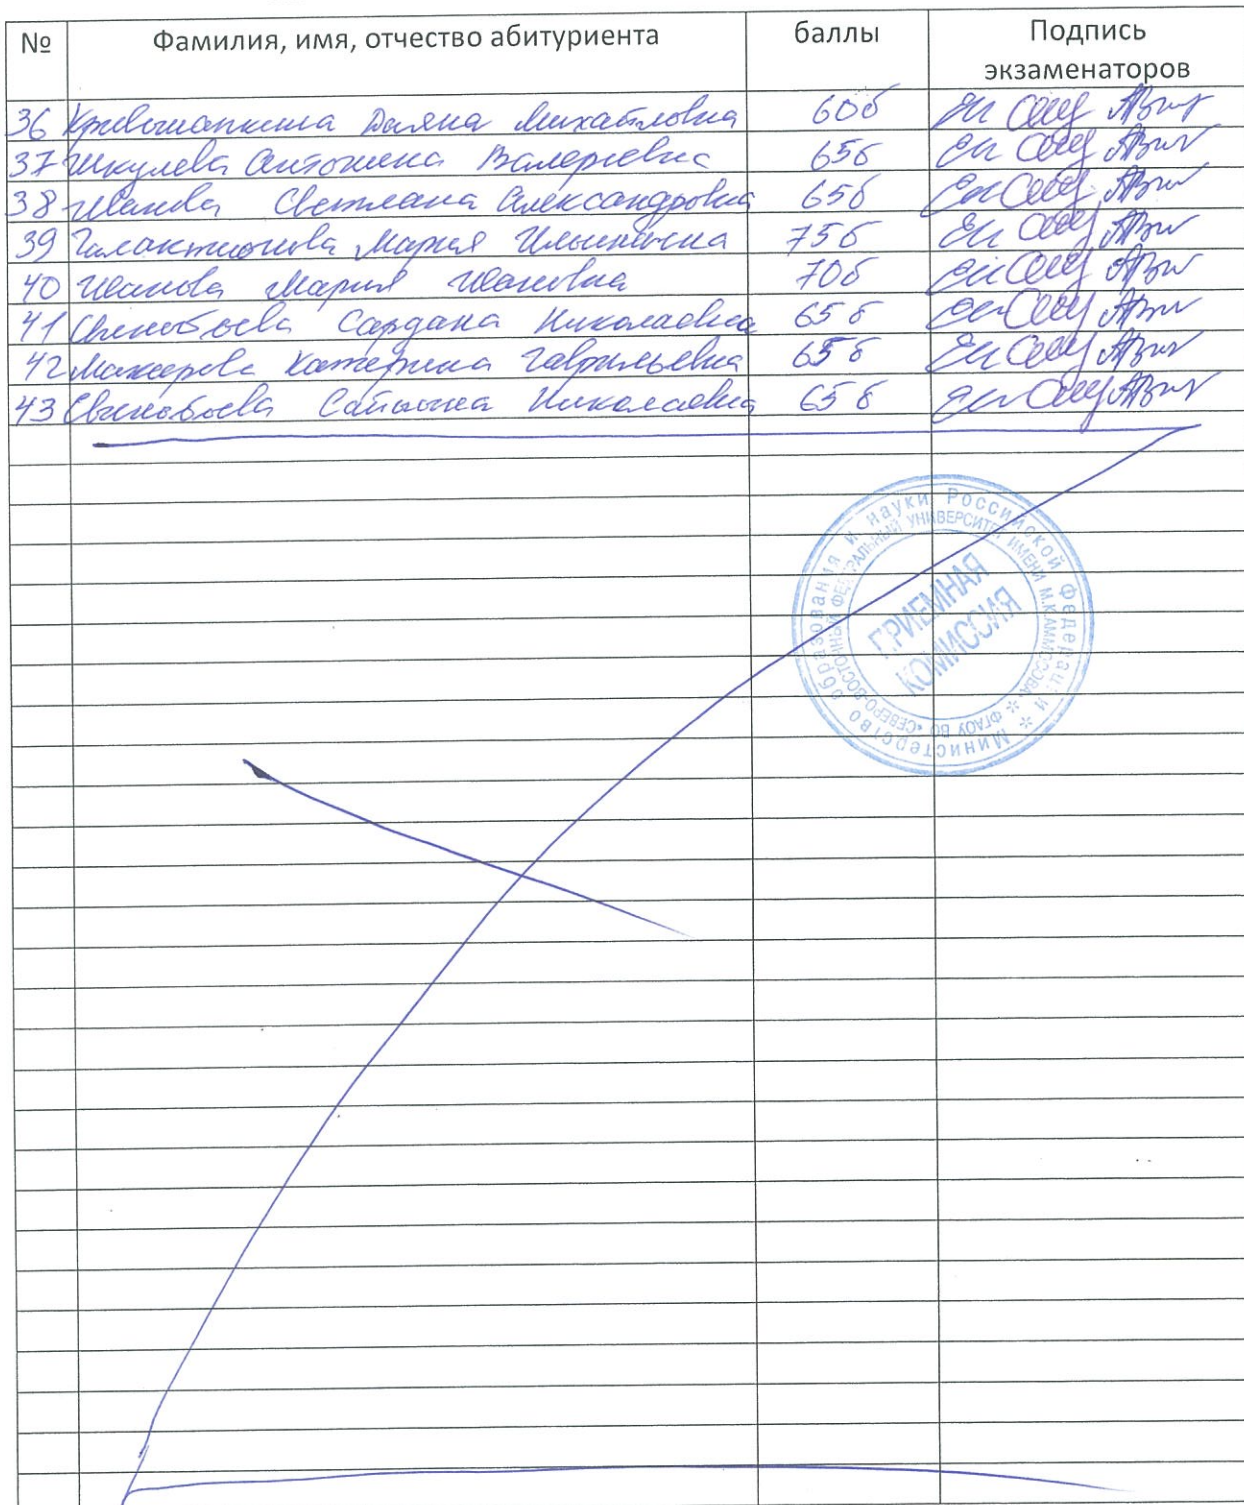 № Фамилия, имя, отчество абитуриента баллы Подпись
экзаменаторов
36 Кривошапкина Даяна Михайловна 60б
37 Шкулева Антонина Валериевна 65б
38 Иванова Светлана Александровна 65б
39 Галактионова Мария Ильинична 75б
40 Иванова Мария Ивановна 70б
41 Сардана Николаевна 65б
42 Катерина Гаврильевна 65б
43 Николаевна 65б
Министерство образования и науки Российской Федерации *
ФГАОУ ВО «СЕВЕРО-ВОСТОЧНЫЙ ФЕДЕРАЛЬНЫЙ УНИВЕРСИТЕТ ИМЕНИ М.К.АММОСОВА» *
ПРИЕМНАЯ
КОМИССИЯ